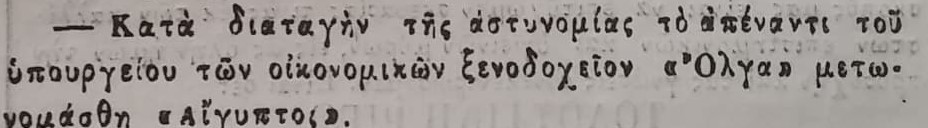 — Κατὰ διαταγὴν τῆς ἀστυνομίας τὸ ἀπέναντι τοῦ
ὑπουργείου τῶν οἰκονομικῶν ξενοδοχεῖον «Ὄλγα» μετω-
νομάσθη «Αἴγυπτος».